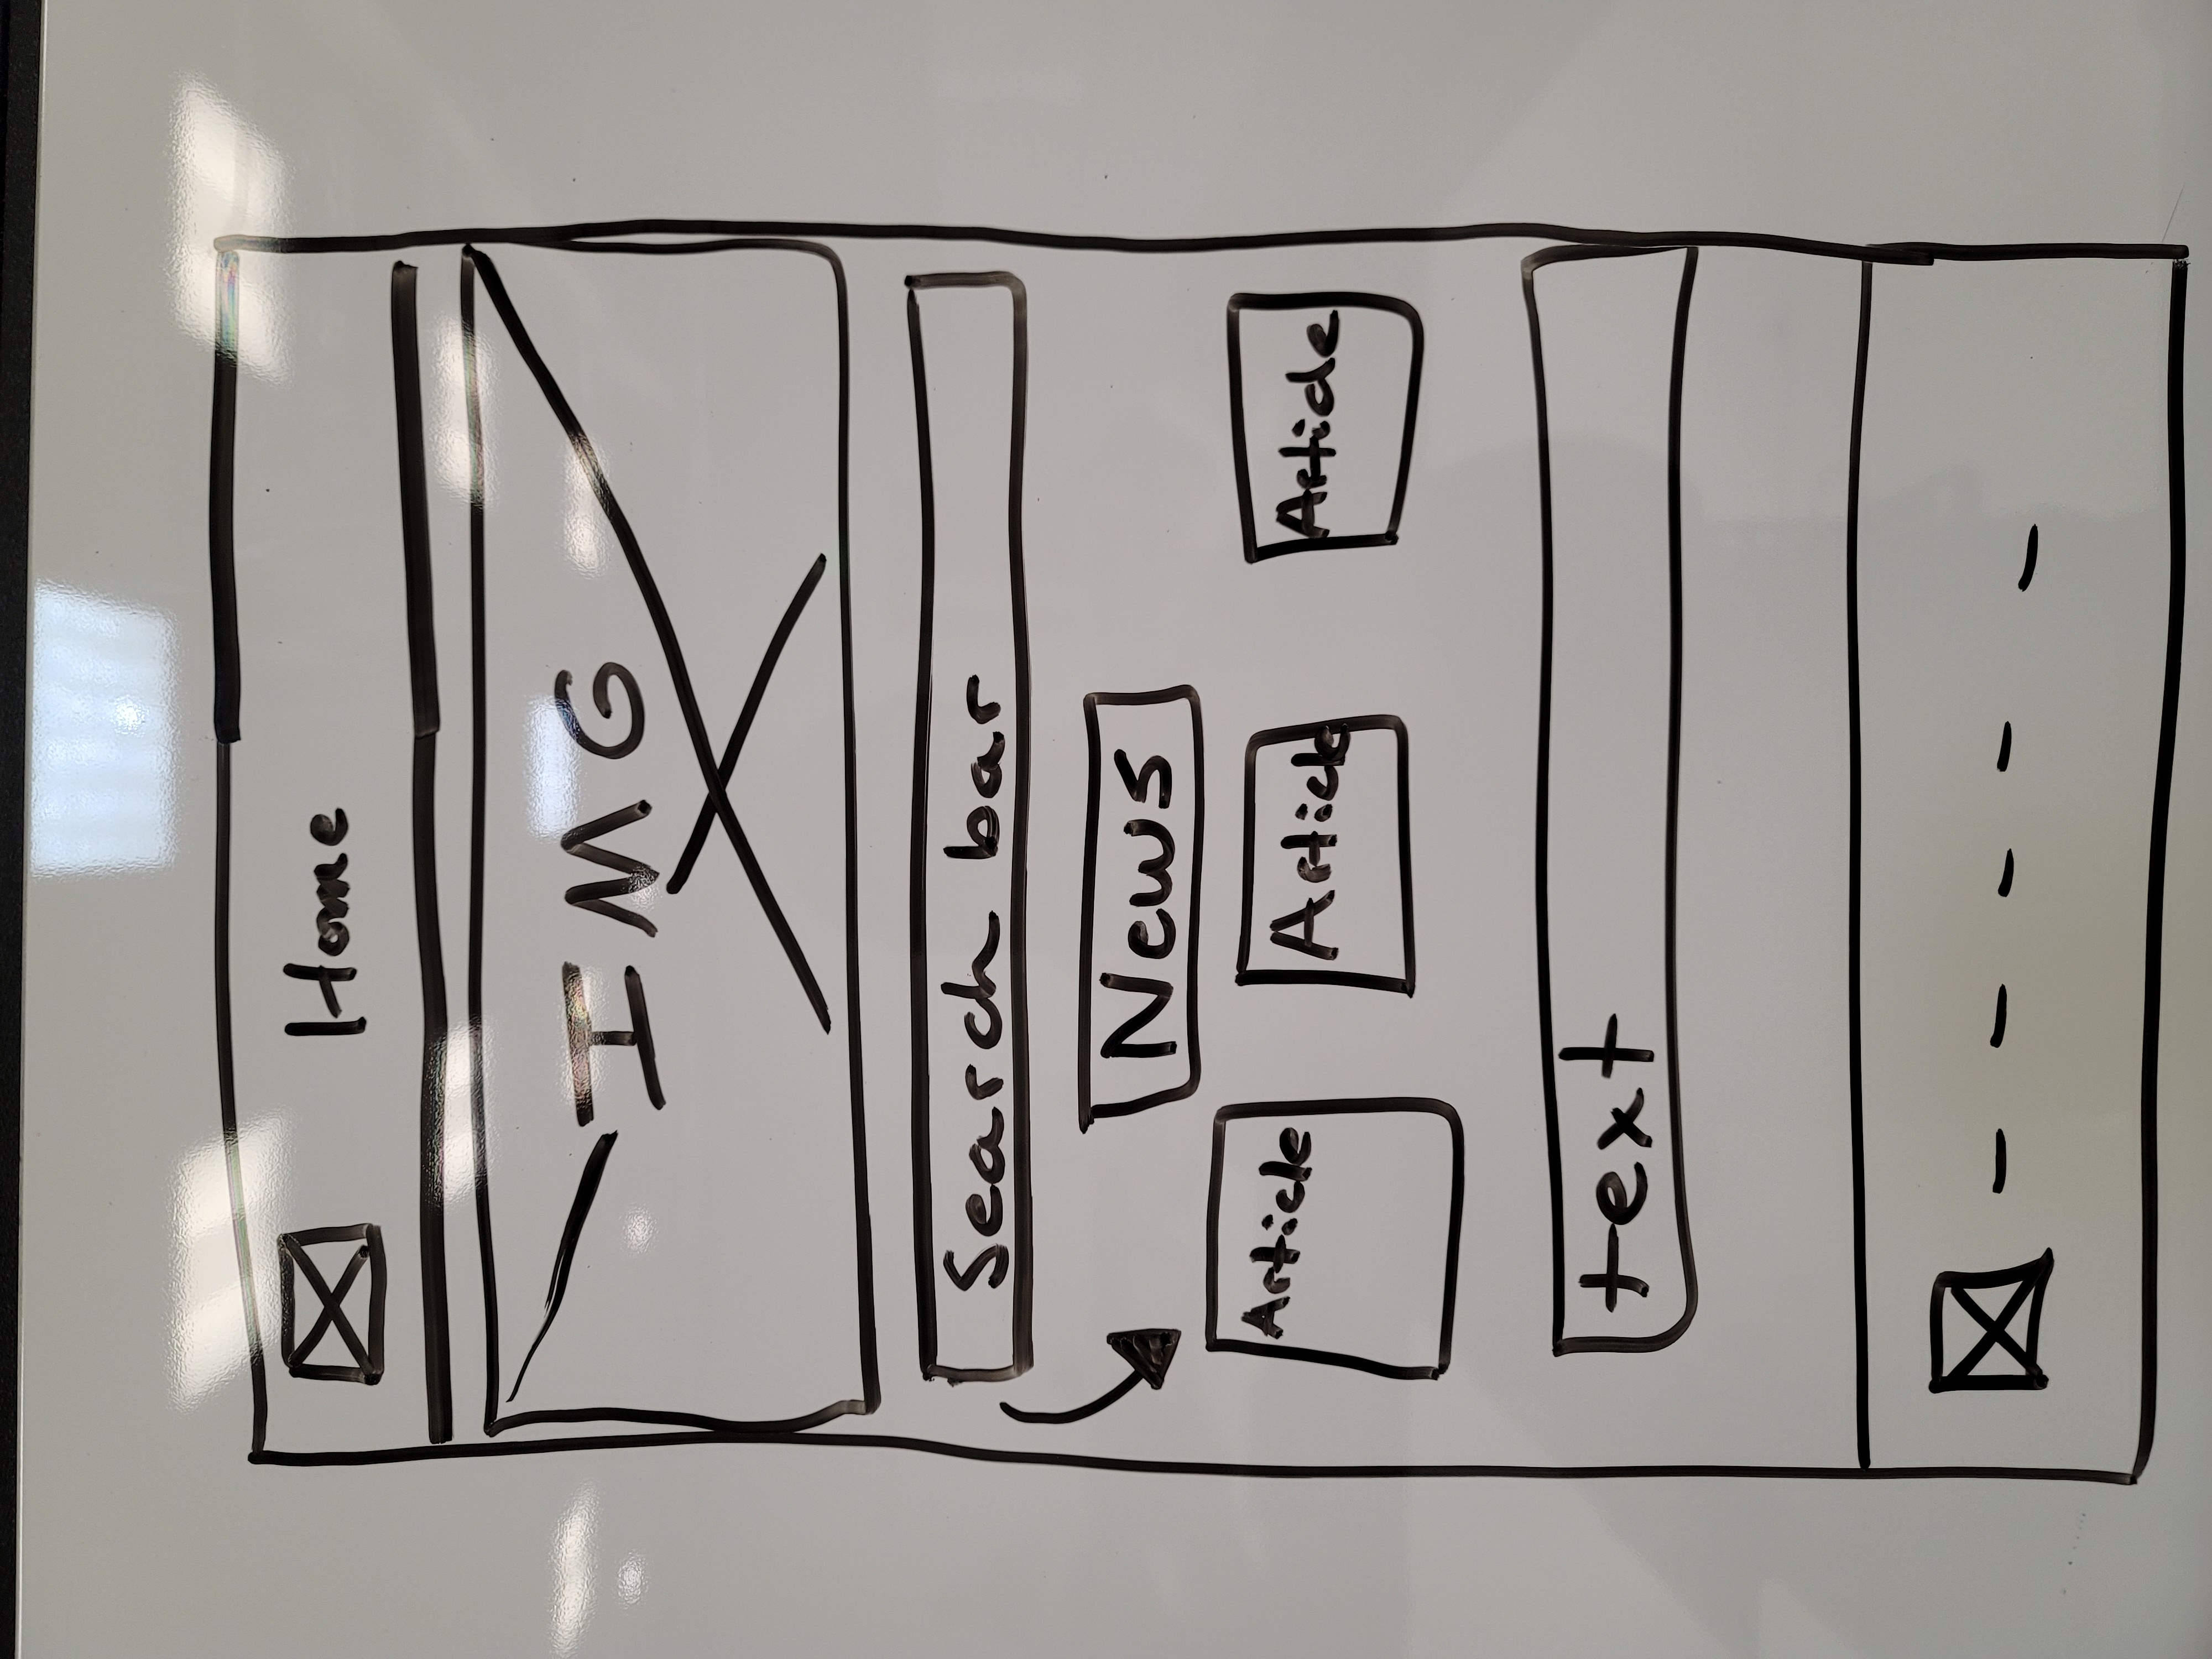 Home
IMG
Search bar
News
Article
Article
Article
text